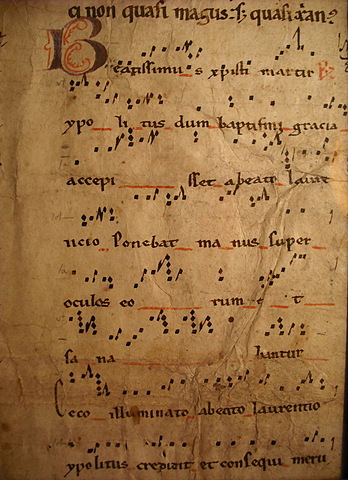 a non quasi magus sꝫ quasi xp̄ian9
Beatissimus xp̄isti martir
ypolitus dum baptismi gracia
accepisset a beato laure
ncio Ponebat manus super
oculos eorum et
sanabantur
Ceco illuminato a beato laurentio
ypolitus credidit et consequi meru